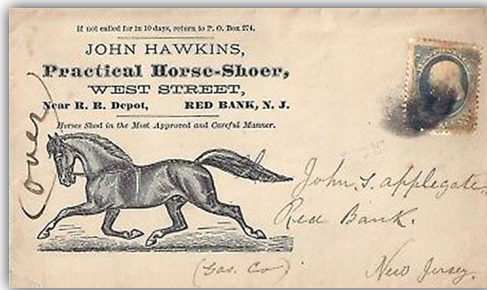 If not called for in 10 days, return to P. O. Box 274,
JOHN HAWKINS,
Practical Horse-Shoer,
WEST STREET,
Near R. R. Depot, RED BANK, N. J.
Horses Shod in the Most Approved and Careful Manner.
(over)
John S. Applegate
Red Bank.
(Gas. Co) New Jersey.